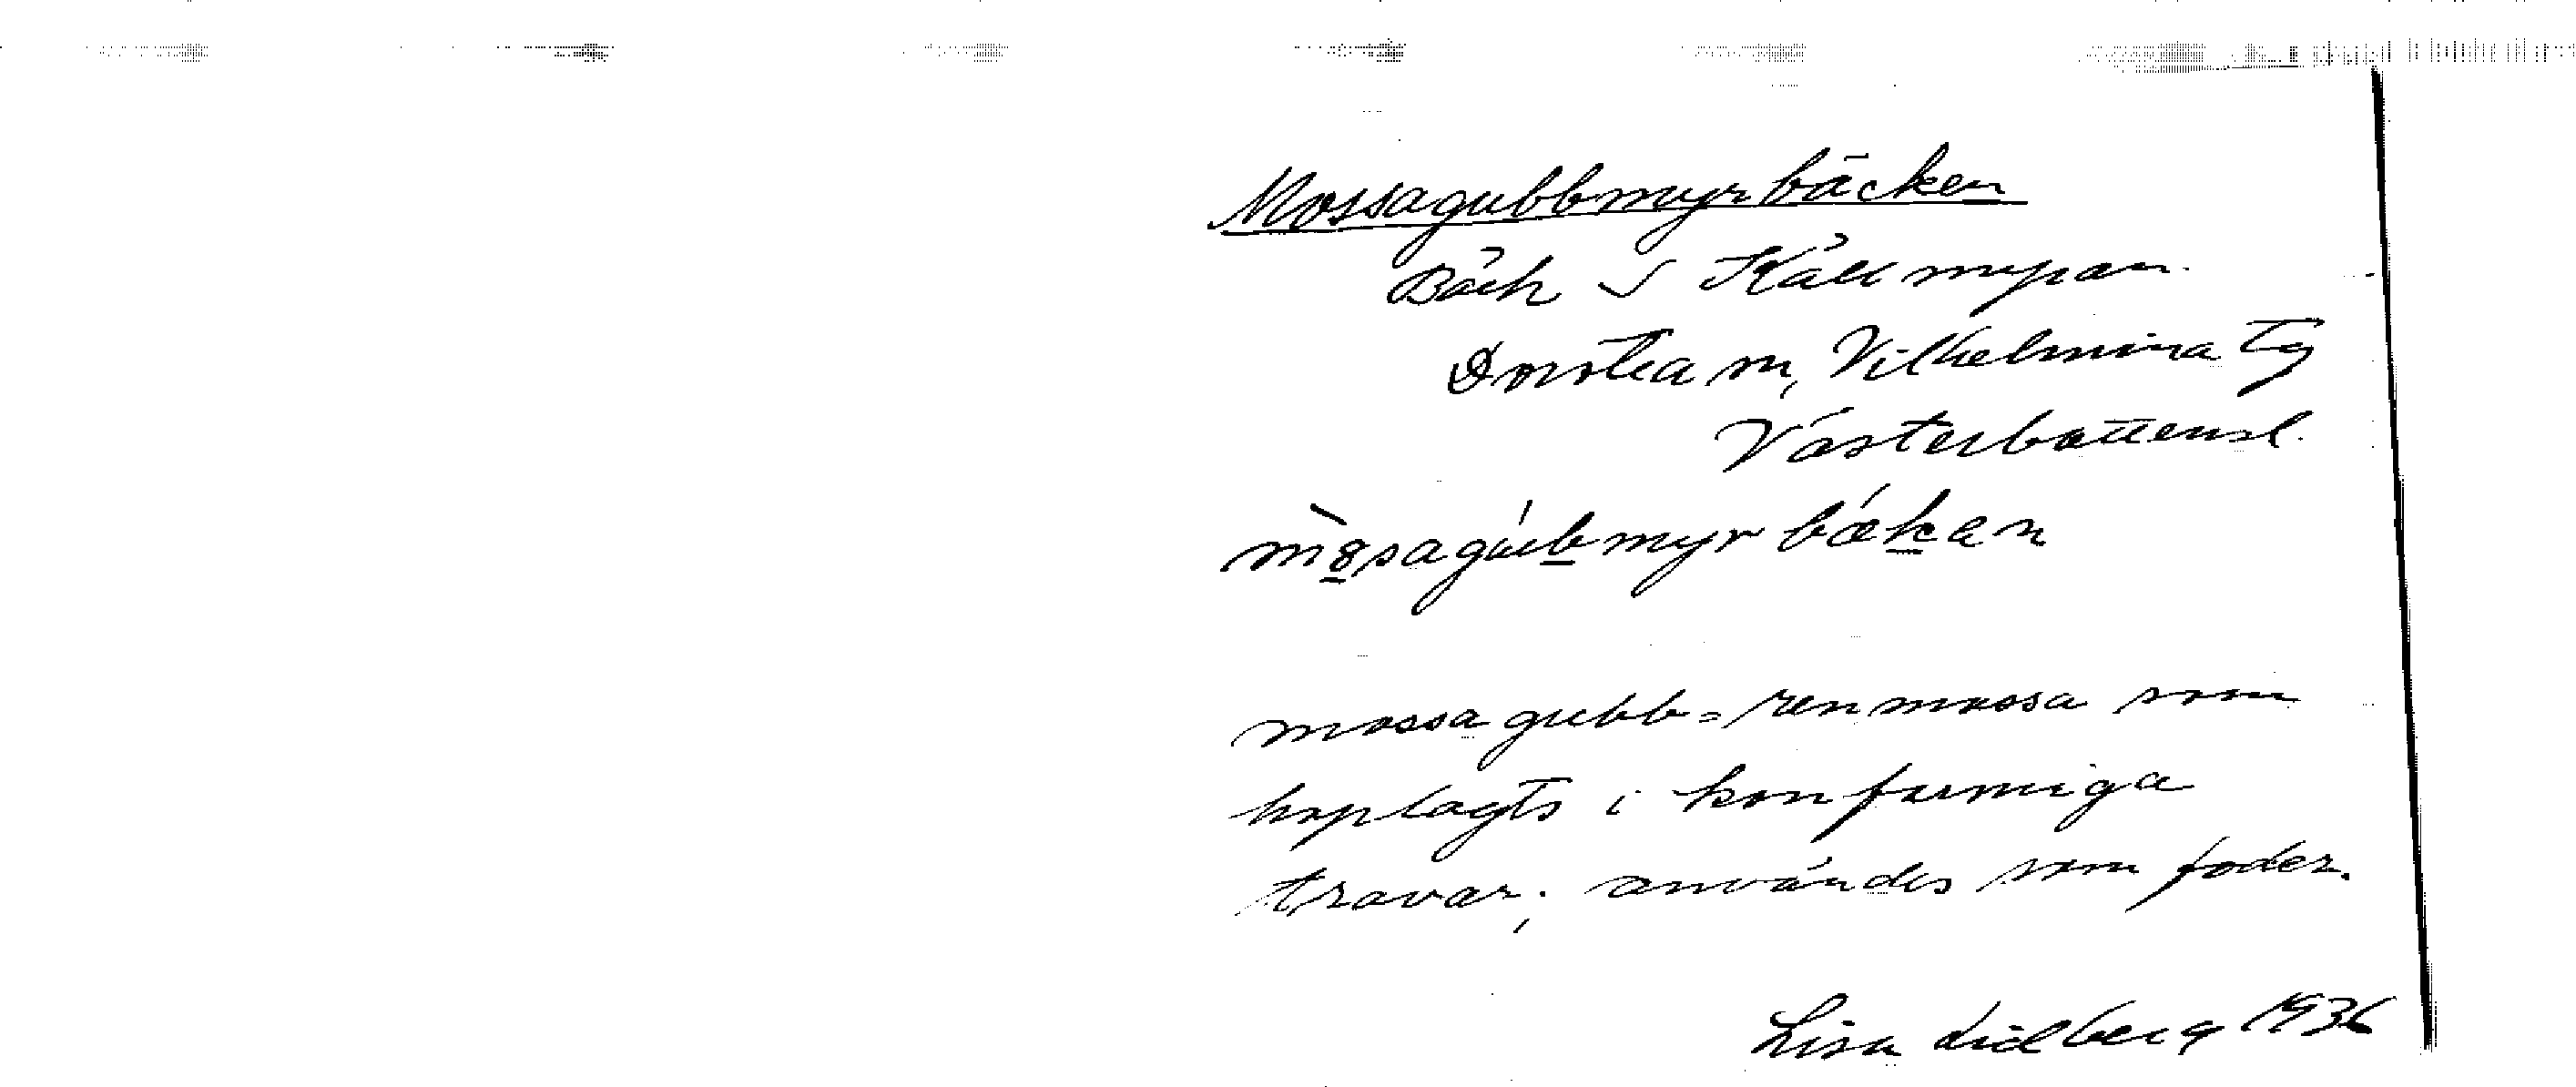 Mossagubbmyrbäcken
Bäck S Källmyran.
Dorotea sn, Vilhelmina tg
Västerbottensl.
mossagubb = renmossa som
hoplagts i konformiga
travar; användes som foder.
Lisa Lidberg 1936